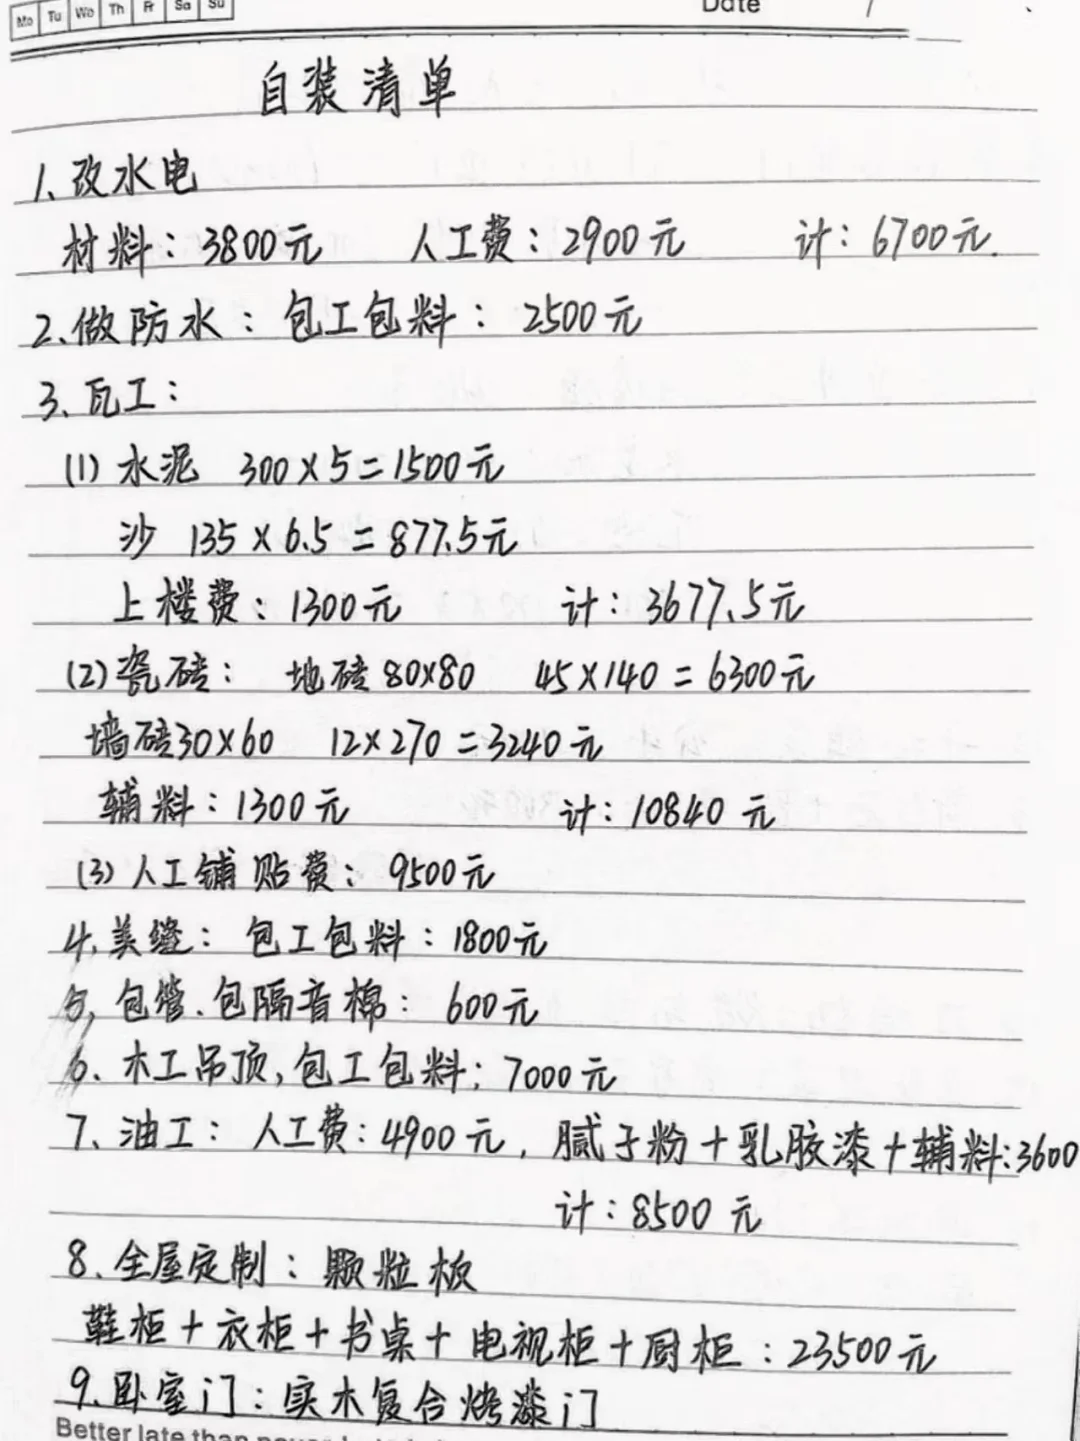 Mo Tu We Th Fr Sa Su
Date /
自装清单
1、改水电
材料：3800元 人工费：2900元 计：6700元.
2、做防水：包工包料：2500元
3、瓦工：
(1) 水泥 300×5=1500元
沙 135×6.5=877.5元
上楼费：1300元 计：3677.5元
(2) 瓷砖： 地砖80×80 45×140=6300元
墙砖30×60 12×270=3240元
辅料：1300元 计：10840元
(3) 人工铺贴费：9500元
4、美缝：包工包料：1800元
5、包管、包隔音棉：600元
6、木工吊顶，包工包料：7000元
7、油工：人工费：4900元，腻子粉+乳胶漆+辅料：3600
计：8500元
8、全屋定制：颗粒板
鞋柜+衣柜+书桌+电视柜+厨柜：23500元
9、卧室门：实木复合烤漆门
Better late than never